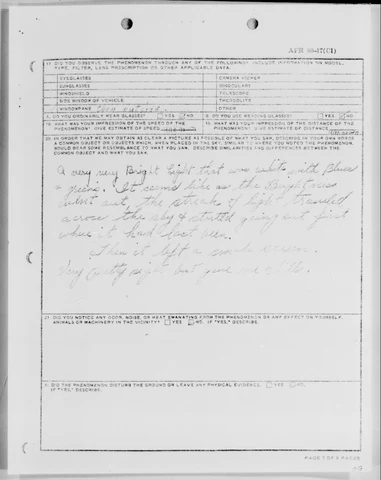 AFR 80-17(C1)
17. DID YOU OBSERVE THE PHENOMENON THROUGH ANY OF THE FOLLOWING? INCLUDE INFORMATION ON MODEL, TYPE, FILTER, LENS PRESCRIPTION OR OTHER APPLICABLE DATA.
EYEGLASSES CAMERA VIEWER
SUNGLASSES BINOCULARS
WINDSHIELD TELESCOPE
SIDE WINDOW OF VEHICLE THEODOLITE
WINDOWPANE OTHER
DO YOU ORDINARILY WEAR GLASSES? YES NO DO YOU USE READING GLASSES? YES NO
WHAT WAS YOUR IMPRESSION OF THE SPEED OF THE PHENOMENON? GIVE ESTIMATE OF SPEED WHAT WAS YOUR IMPRESSION OF THE DISTANCE OF THE PHENOMENON? GIVE ESTIMATE OF DISTANCE
20. IN ORDER THAT WE MAY OBTAIN AS CLEAR A PICTURE AS POSSIBLE OF WHAT YOU SAW, DESCRIBE IN YOUR OWN WORDS
A COMMON OBJECT OR OBJECTS WHICH, WHEN PLACED IN THE SKY, SIMILAR TO WHERE YOU NOTED THE PHENOMENON,
WOULD BEAR SOME RESEMBLANCE TO WHAT YOU SAW. DESCRIBE SIMILARITIES AND DIFFERENCES BETWEEN THE
COMMON OBJECT AND WHAT YOU SAW.
A very very Bright light that was white with Blues
& greens. It came like as the Brightness
burst out, the streak of light traveled
across the sky & started going out first
where it had last been.
Then it left a smoke
Very pretty sight but gave me chills.
21. DID YOU NOTICE ANY ODOR, NOISE, OR HEAT EMANATING FROM THE PHENOMENON OR ANY EFFECT ON YOURSELF,
ANIMALS OR MACHINERY IN THE VICINITY? YES NO. IF "YES," DESCRIBE.
DID THE PHENOMENON DISTURB THE GROUND OR LEAVE ANY PHYSICAL EVIDENCE. YES NO.
IF "YES," DESCRIBE.